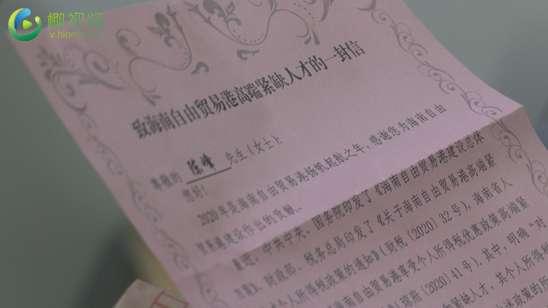 椰视频
v.hinews.cn
致海南自由贸易港高端紧缺人才的一封信
尊敬的 陈峰 先生(女士):
您好!
2020年是海南自由贸易港扬帆起航之年,感谢您为海南自由
贸易港建设作出的贡献。
中共中央、国务院印发了《海南自由贸易港建设总体
方案》,财政部、税务总局印发了《关于海南自由贸易港高端紧
缺人才个人所得税政策的通知》(财税〔2020〕32号),海南省人
享受个人所得税优惠政策高端紧
〔2020〕41号),其中,明确,对
缺人才,其个人所得税
政策的所